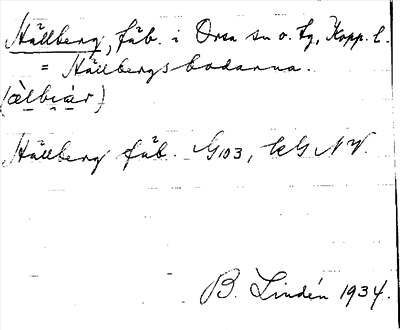 Hållberg, fäb. i Orsa sn o. tg, Kopp. l.
= Hållbergsbodarna.
(àlbiár)
Hållberg fäb. G103, kG NV.
B. Lindén 1934.